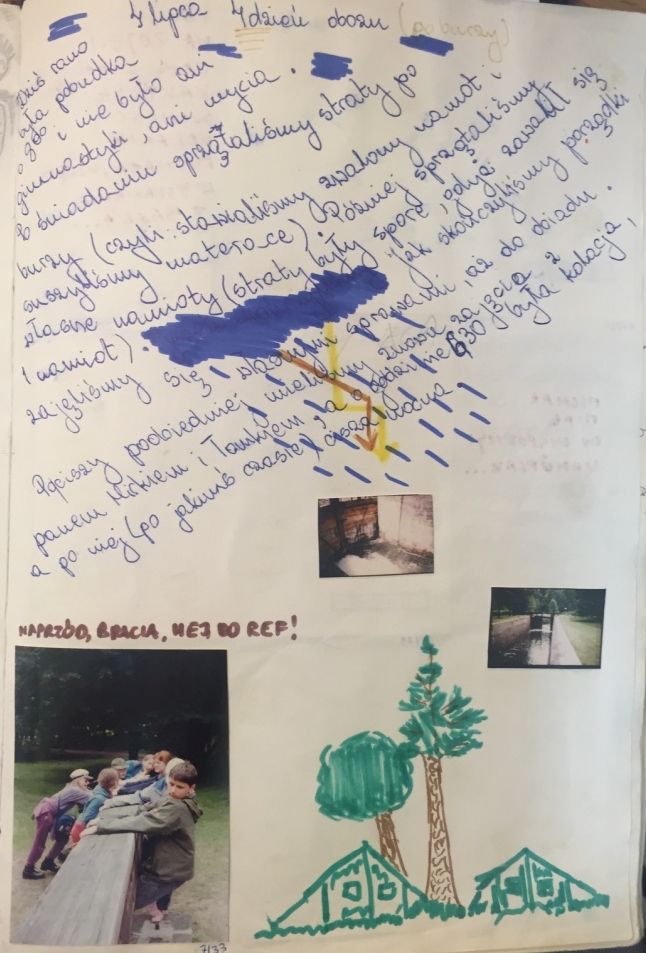 4 lipca 4 dzień obozu (po burzy)
Dziś rano
była pobudka
o 9:00 i nie było ani
gimnastyki, ani mycia.
Po śniadaniu sprzątaliśmy straty po
burzy (czyli: stawialiśmy zwalony namiot i
suszyliśmy materace). Później sprzątaliśmy
własne namioty (straty były spore, gdyż zawalił się
1 namiot). Jak skończyliśmy porządki
zajęliśmy się własnymi sprawami, aż do obiadu.
Po ciszy poobiedniej mieliśmy znowu zajęcia z
panem Mirkiem i Tomkiem, a o godzinie 6,30 była kolacja,
a po niej (po jakimś czasie) cisza nocna.
NAPRZÓD, BRACIA, HEJ DO REF!
7/33